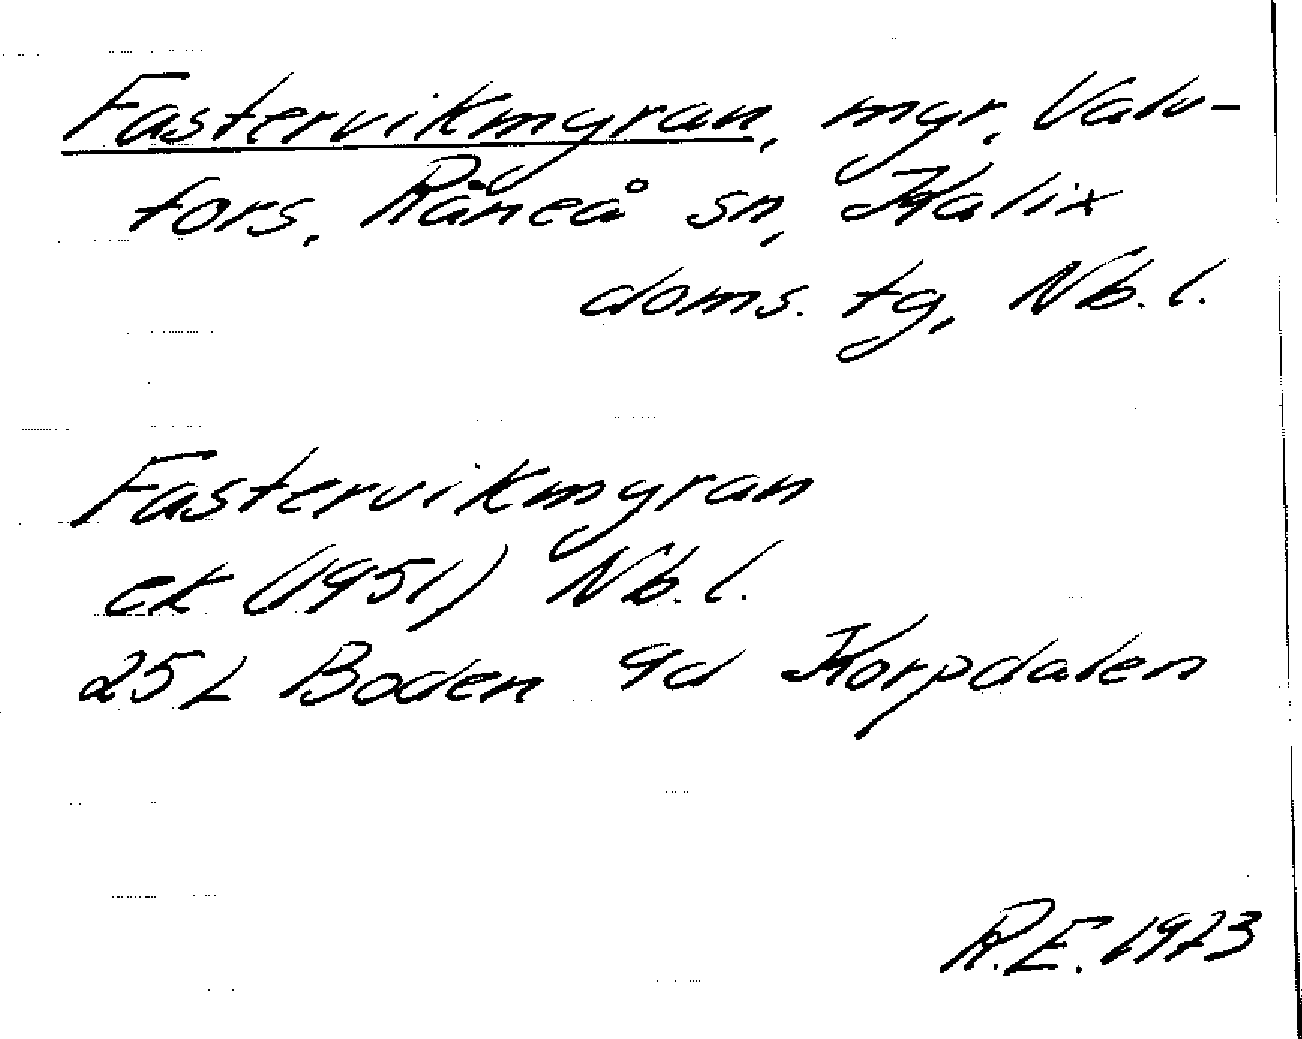 Fastervikmyran, myr, Valv-
fors, Råneå sn, Kalix
doms. tg, Nb. l.
Fastervikmyran
ek (1951) Nb. l.
25L Boden 9d Korpdalen
R.E. 1973